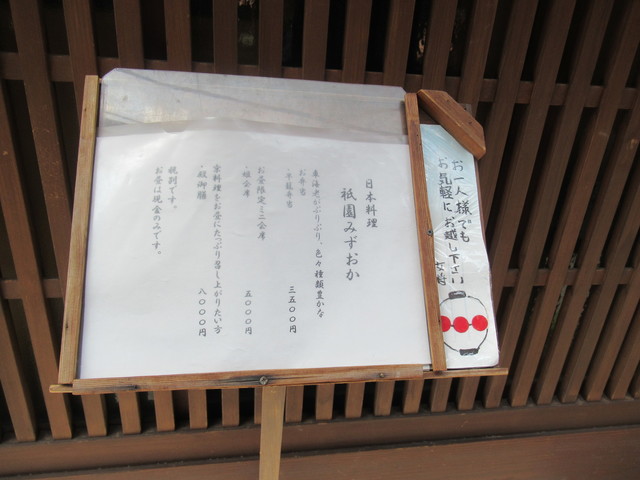 日本料理
祇園みずおか
車海老がぷりぷり、色々種類豊かな
お弁当
・半籠弁当 三五〇〇円
お昼限定ミニ会席
・姫会席 五〇〇〇円
京料理をお昼にたっぷり召し上がりたい方
・昼御膳 八〇〇〇円
税別です。
お昼は現金のみです。
お一人様でも
お気軽にお越し下さい
女将